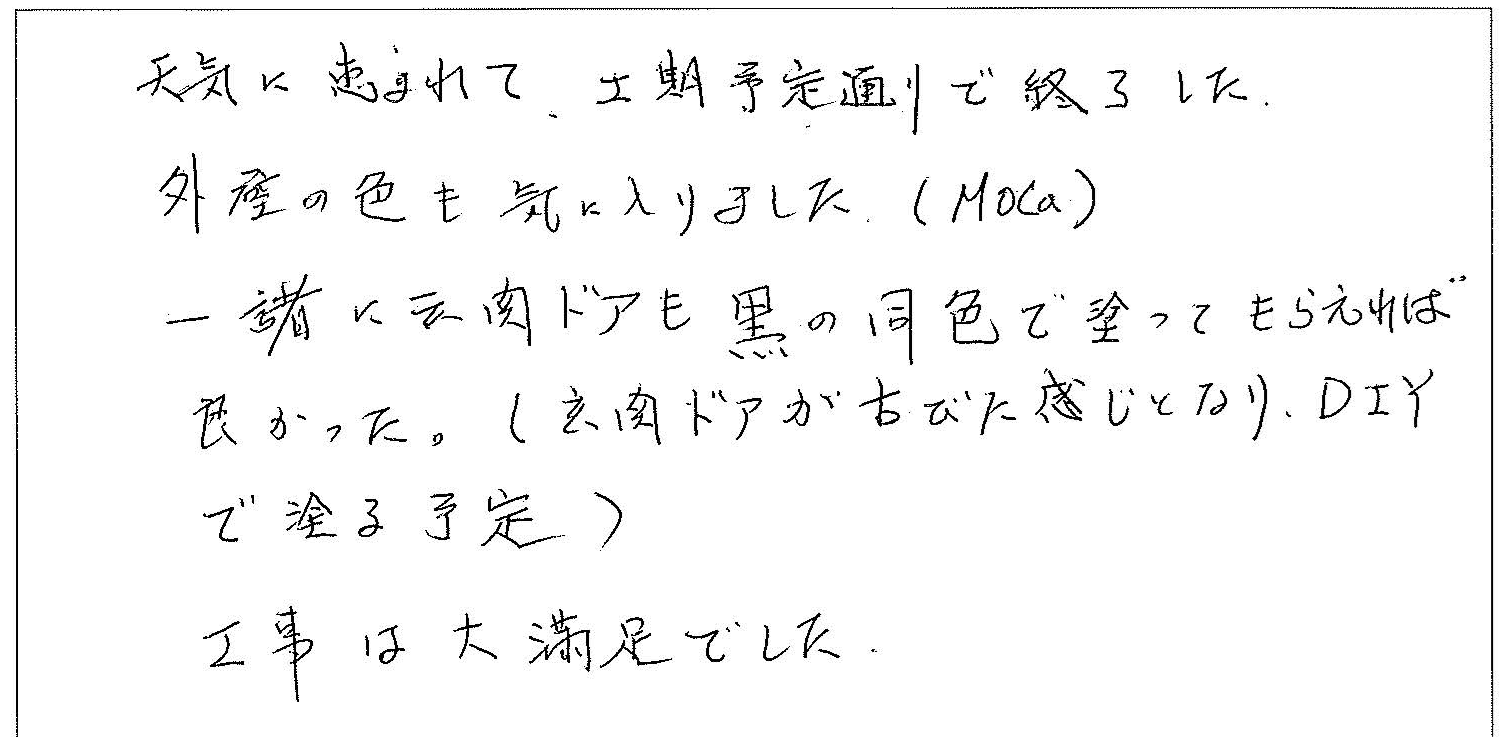 天気に恵まれて、工期予定通りで終了した.
外壁の色も気に入りました.(MOCa)
一諸に玄関ドアも黒の同色で塗ってもらえれば
良かった。(玄関ドアが古びた感じとなり、DIY
で塗る予定)
工事は大満足でした.